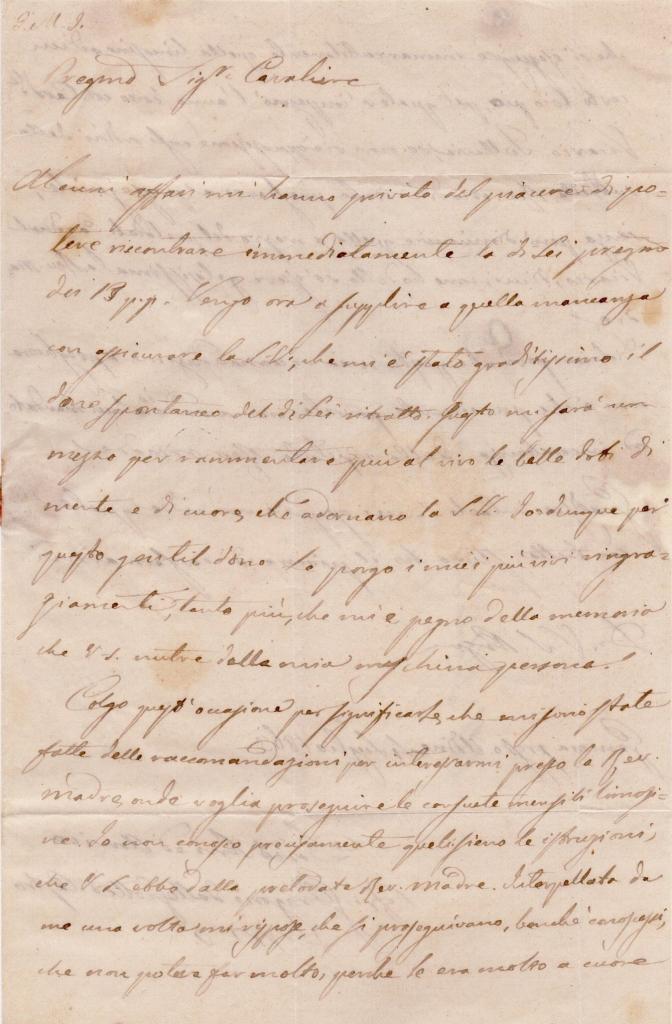 G. M. J.
Pregmo Sigr. Cavaliere
Alcuni affari mi hanno privato del piacere di po-
tere riscontrare immediatamente la di Lei pregma
dei 13 p.p. Vengo ora a supplire a quella mancanza
con assicurare la S.V., che mi è stato graditissimo il
dono spontaneo del di Lei ritratto. Questo mi sarà un
mezzo per rammentare più al vivo le belle doti di
mente e di cuore, che adornano la S.V. Io dunque per
questo gentil dono Le porgo i miei più vivi ringra-
ziamenti, tanto più, che mi è pegno della memoria
che V.S. nutre della mia meschina persona.
Colgo quest'occasione per significarle, che mi sono state
fatte delle raccomandazioni per interessarmi presso la Rev.
Madre, onde voglia proseguire le consuete mensili limosi-
ne. Io non conosco precisamente quali sieno le istruzioni,
che V.S. ebbe dalla prelodata Rev. Madre. Interpellata da
me una volta mi rispose, che si proseguivano, benchè conoscessi,
che non poteva far molto, perchè le era molto a cuore